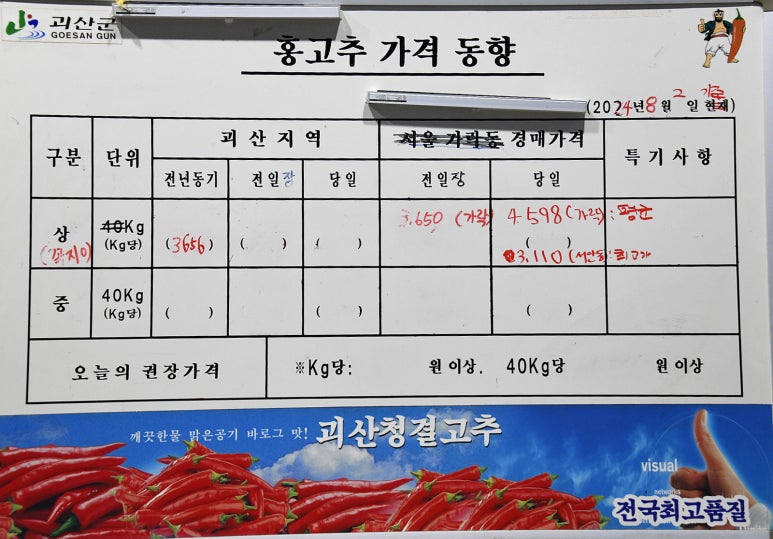 괴산군
GOESAN GUN
홍고추 가격 동향
(2024년 8월 2일 현재)
구분 단위 괴산지역 서울 가락동 경매가격 특기사항
전년동기 전일장 당일 전일장 당일
상 40Kg 3,650 (가락) 4,598 (가락) : 평균
(꼭지이) (Kg당) (3656) ( ) ( ) ( )
3,110 (서안동) : 최고가
중 40Kg
(Kg당) ( ) ( ) ( )
오늘의 권장가격 ※Kg당: 원이상. 40Kg당 원이상
깨끗한물 맑은공기 바로그 맛! 괴산청결고추
visual
networks
전국최고품질